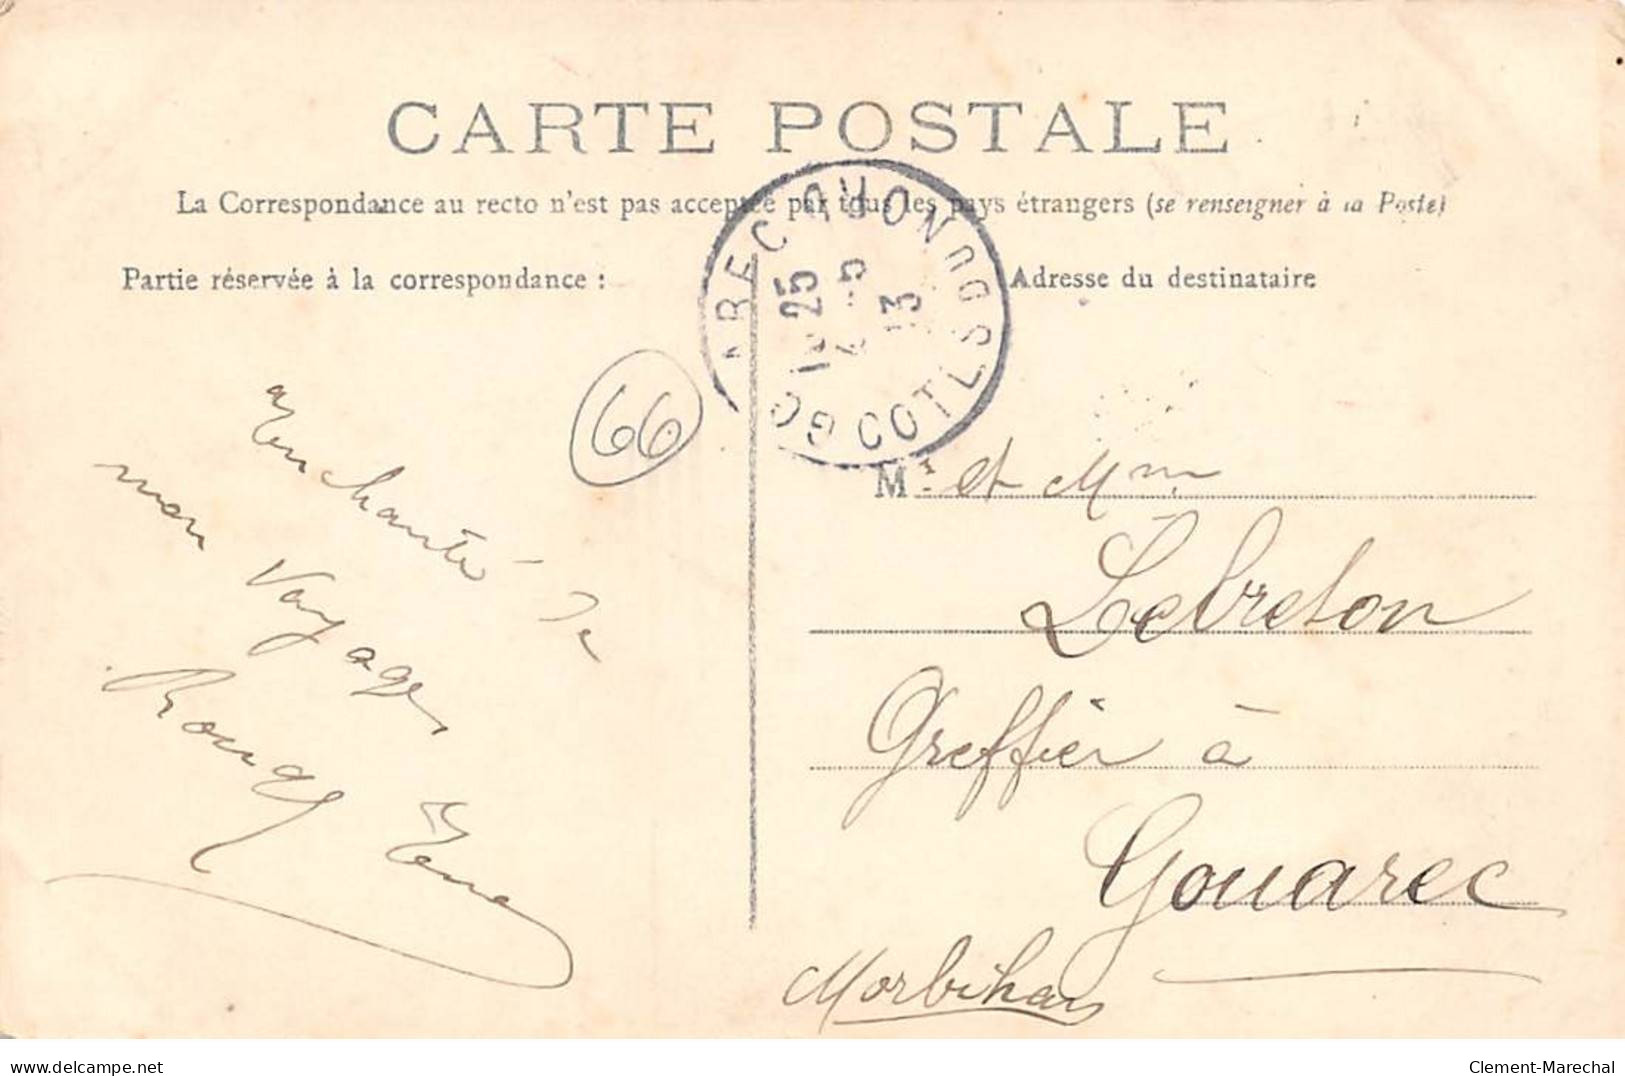 CARTE POSTALE
La Correspondance au recto n'est pas acceptée par tous les pays étrangers (se renseigner à la Poste)
Partie réservée à la correspondance :
Adresse du destinataire
GOUAREC
COTES DU NORD
25
5
13
66
Enchanté de
mon voyage
René
Mr et Mme
Lebreton
Greffier à
Gouarec
Morbihan
delcampe.net
Clement-Marechal